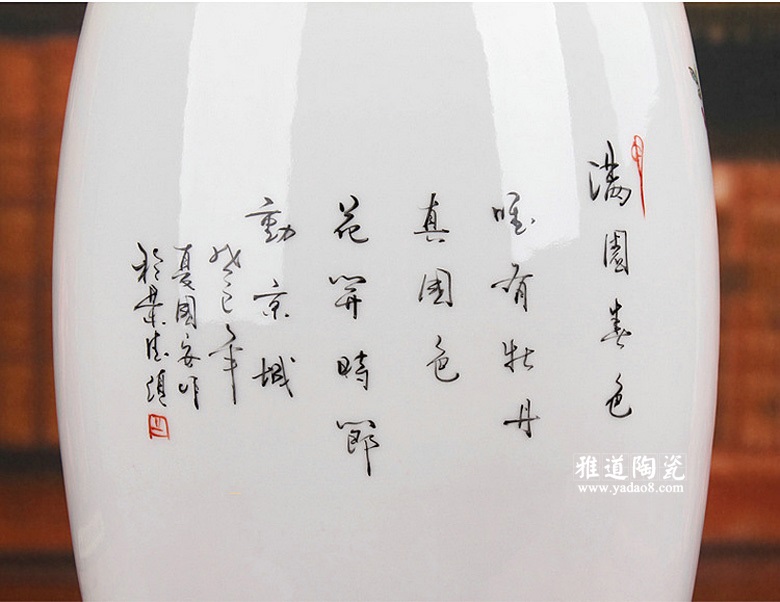 满園春色
唯有牡丹
真国色
花開時節
動京城
癸巳年
夏國安作
於景德鎮
雅道陶瓷
www.yadao8.com